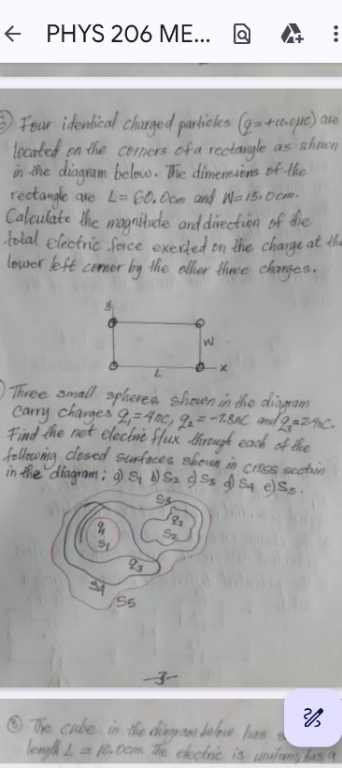 PHYS 206 ME...
Four identical charged particles (q=+10.0μC) are
located on the corners of a rectangle as shown
in the diagram below. The dimensions of the
rectangle are L= 60.0cm and W=15.0cm.
Calculate the magnitude and direction of the
total electric force exerted on the charge at the
lower left corner by the other three charges.
y
W
L
x
Three small spheres shown in the diagram
carry charges q1=4nC, q2=-7.8nC and q3=2.4nC.
Find the net electric flux through each of the
following closed surfaces shown in cross section
in the diagram; a) S1 b) S2 c) S3 d) S4 e) S5.
S3
q1
S1
q2
S2
q3
S4
S5
-3-
⑧ The cube in the diagram below has
length L = 10.0cm The electric is uniform, has a